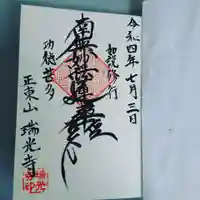 令和四年七月三日
如説修行
南無妙法蓮華経
功徳甚多
正東山 瑞光寺